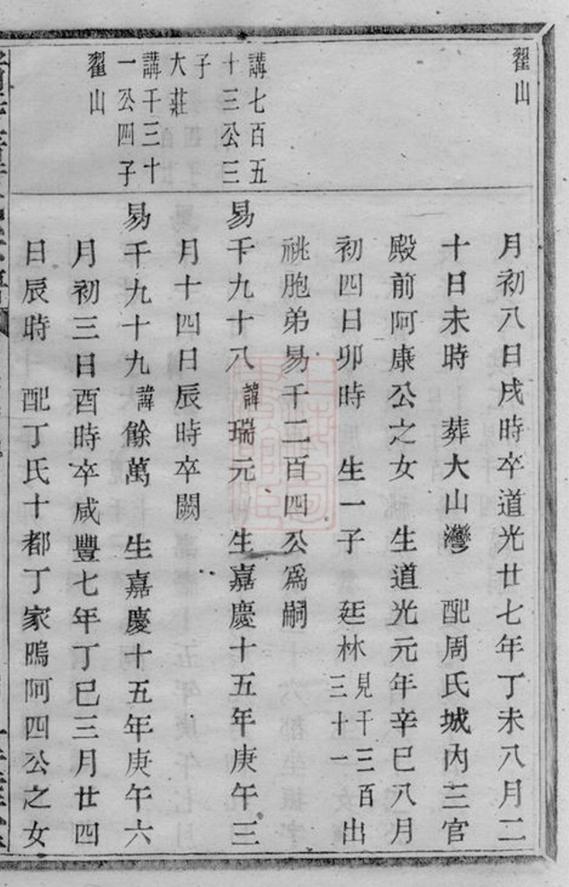 翟山
月初八日戌時卒道光廿七年丁未八月二
十日未時　葬大山灣　配周氏城內三官
殿前阿康公之女　生道光元年辛巳八月
初四日卯時　生一子　廷林見千三百三十一出
祧胞弟易千二百四公爲嗣
講七百五
十三公三
子
易千九十八諱瑞元　生嘉慶十五年庚午三
月十四日辰時卒闕
大莊
講千三十
一公四子
翟山
易千九十九諱餘萬　生嘉慶十五年庚午六
月初三日酉時卒咸豐七年丁巳三月廿四
日辰時　配丁氏十都丁家塢阿四公之女